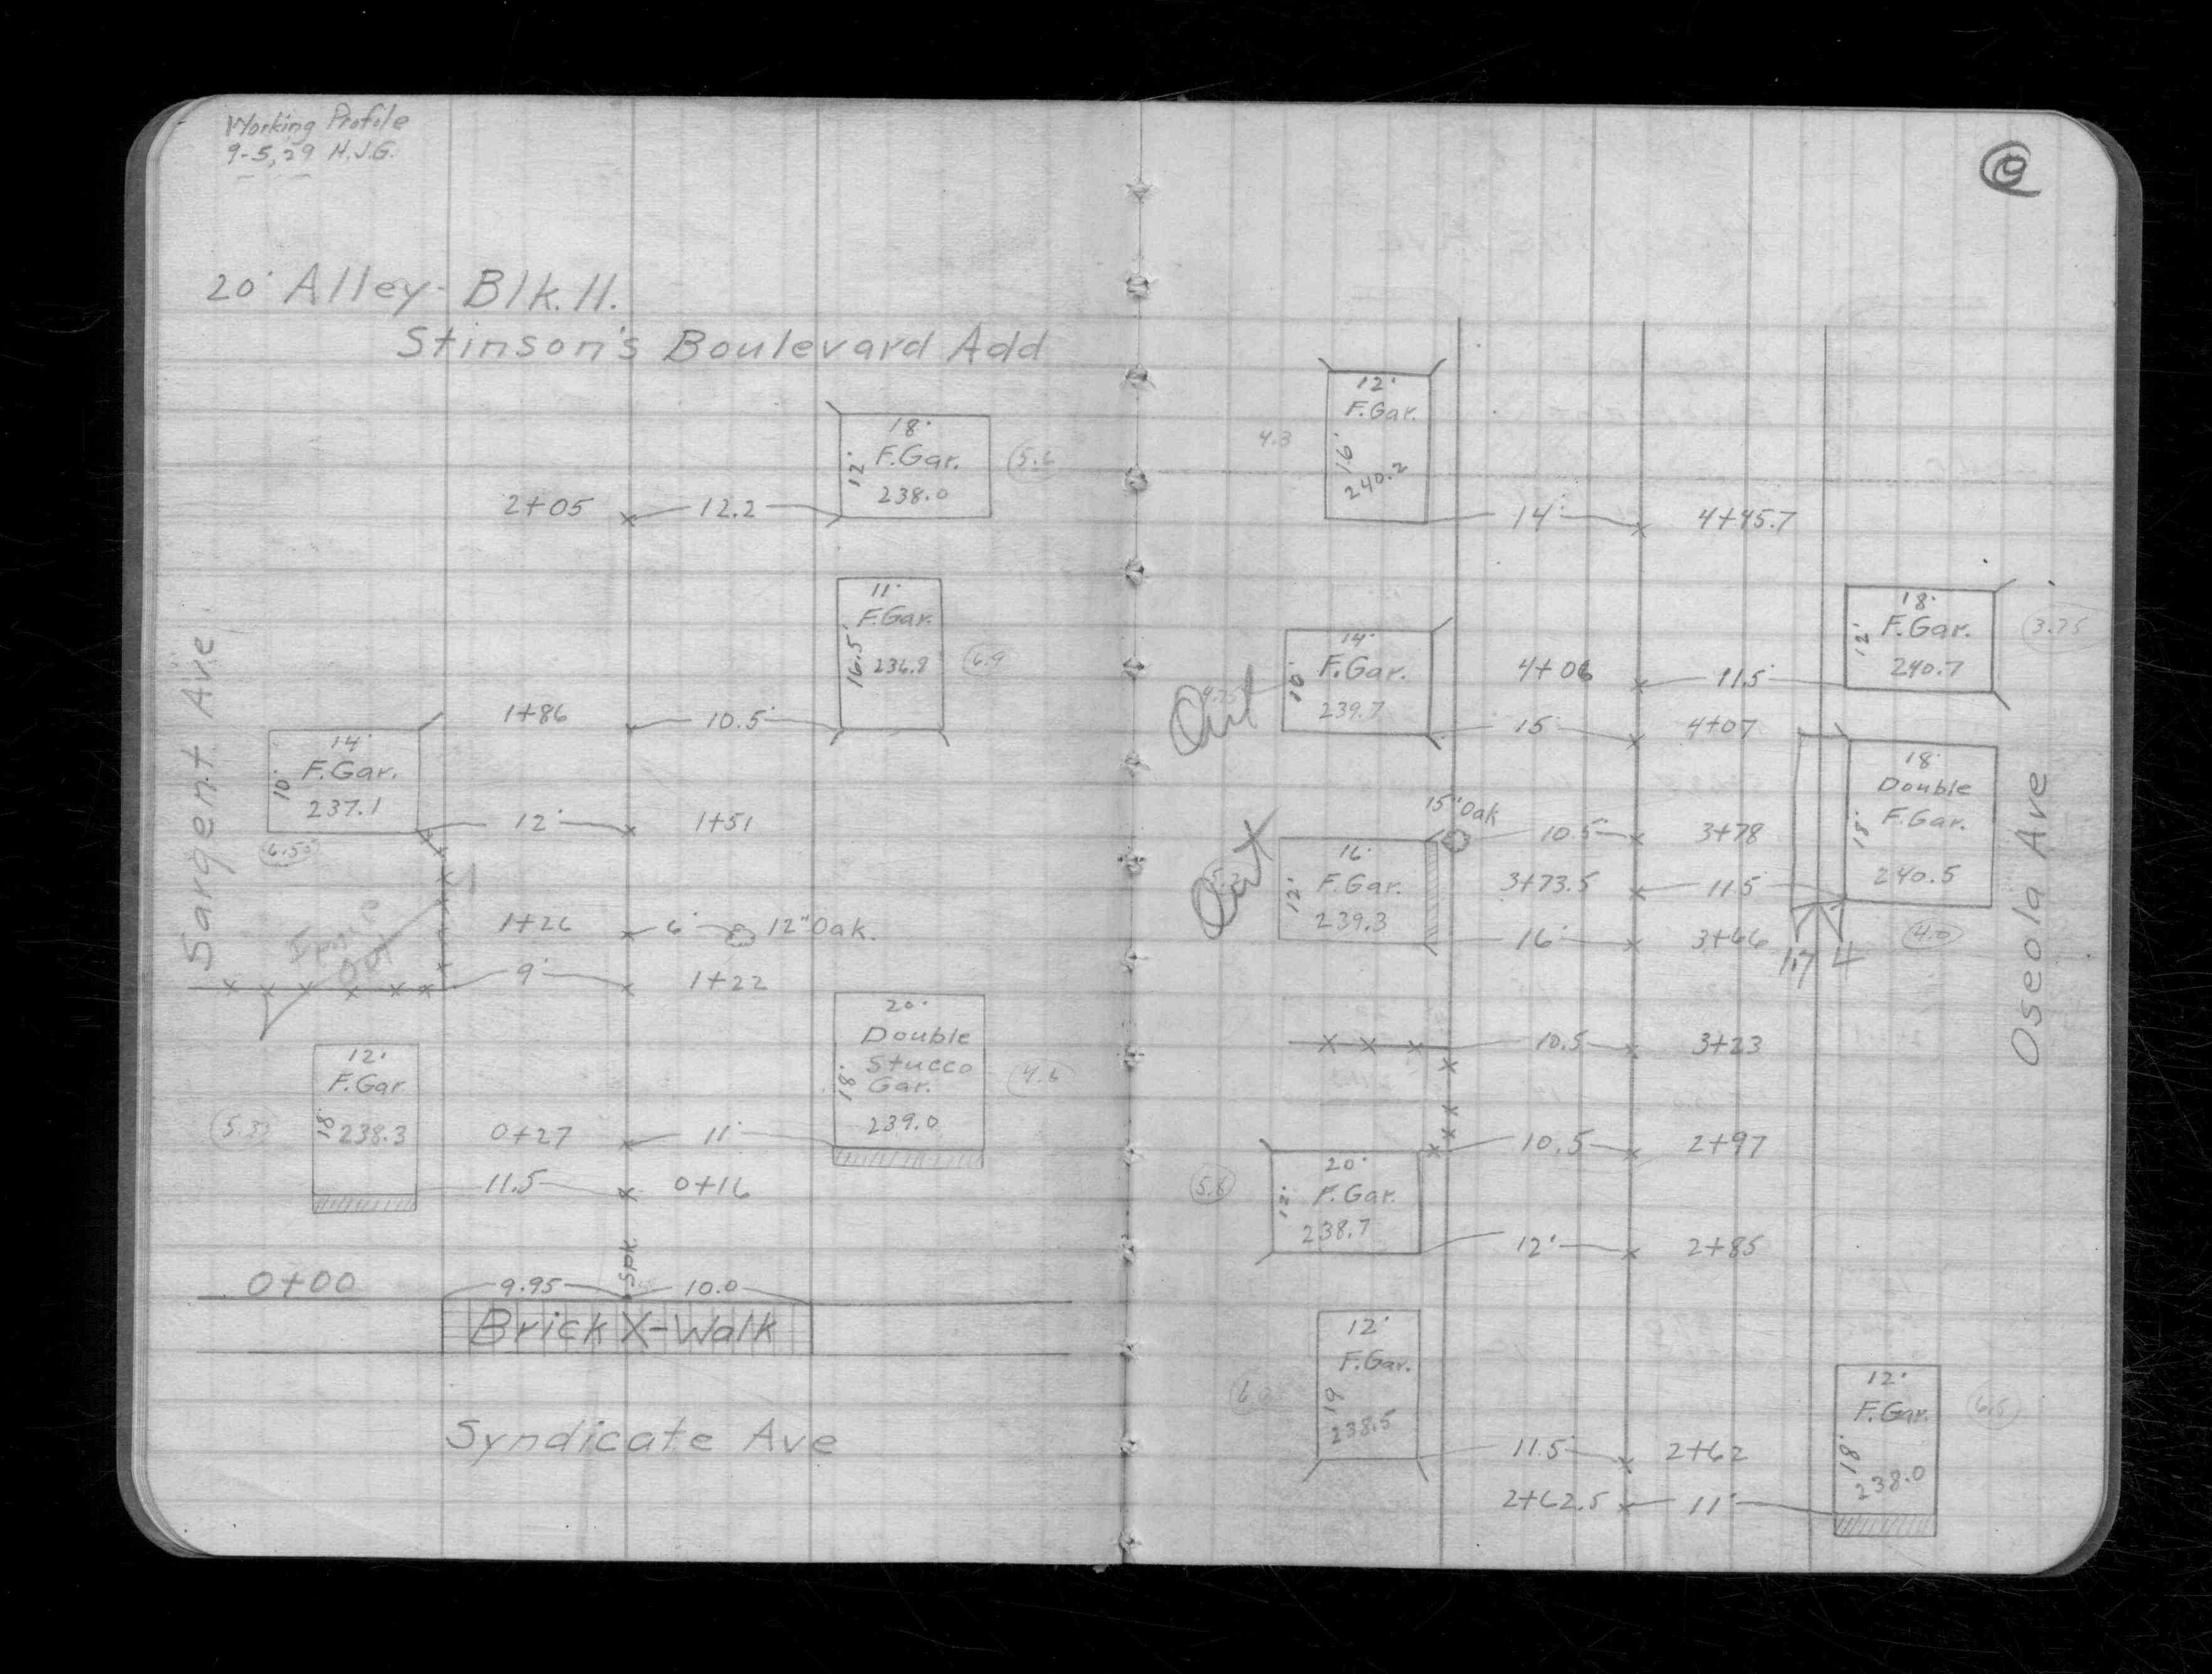 Working Profile
9-5,29 H.J.G.
20' Alley- Blk. 11.
Stinson's Boulevard Add
18'
12'
F.Gar.
238.0
2+05
12.2
11'
F.Gar.
16.5'
236.8
6.9
1+86
10.5'
14'
10'
F.Gar.
237.1
6.50
12'
1+51
1+26
6'
12" Oak.
Out
9'
1+22
Sargent Ave
20'
Double
Stucco
Gar.
18'
239.0
4.6
12'
F.Gar
18'
238.3
0+27
11'
11.5
0+16
Spk
0+00
9.95
10.0
Brick X-Walk
Syndicate Ave
12'
F.Gar.
16'
240.2
4.3
14'
4+45.7
18'
12'
F.Gar.
240.7
3.75
14'
10'
F.Gar.
239.7
Out
4+06
11.5'
15'
4+07
18'
Double
18'
F.Gar.
240.5
4.0
15" Oak
10.5'
3+78
16'
12'
F.Gar.
239.3
Out
3+73.5
11.5'
16'
3+66
1.7
4
Oseola Ave
10.5
3+23
10.5
2+97
20'
12'
F.Gar.
238.7
5.8
12'
2+85
12'
F.Gar.
19
238.5
11.5'
2+62
2+62.5
11'
12'
F.Gar.
18'
238.0
6.5